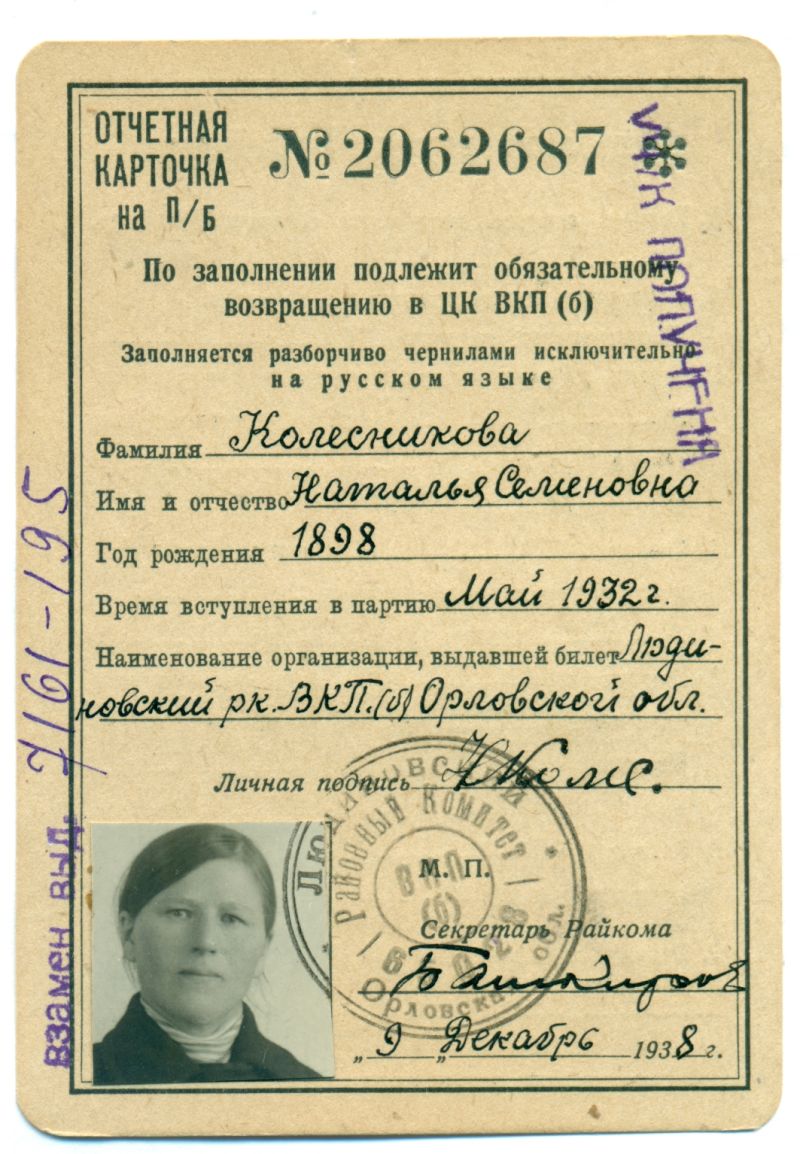 ОТЧЕТНАЯ
КАРТОЧКА
на П/Б
№ 2062687
По заполнении подлежит обязательному
возвращению в ЦК ВКП (б)
Заполняется разборчиво чернилами исключительно
на русском языке
Фамилия Колесникова
Имя и отчество Наталья Семеновна
Год рождения 1898
Время вступления в партию Май 1932 г.
Наименование организации, выдавшей билет Люди-
новский рк. ВКП.(б) Орловской обл.
Личная подпись НКолес.
М. П.
Секретарь Райкома
„ 9 „ Декабрь 1938 г.
Районный Комитет
ВКП
(б)
Орловская обл.
взамен выд. 7161-195
ПОЛУЧЕНА